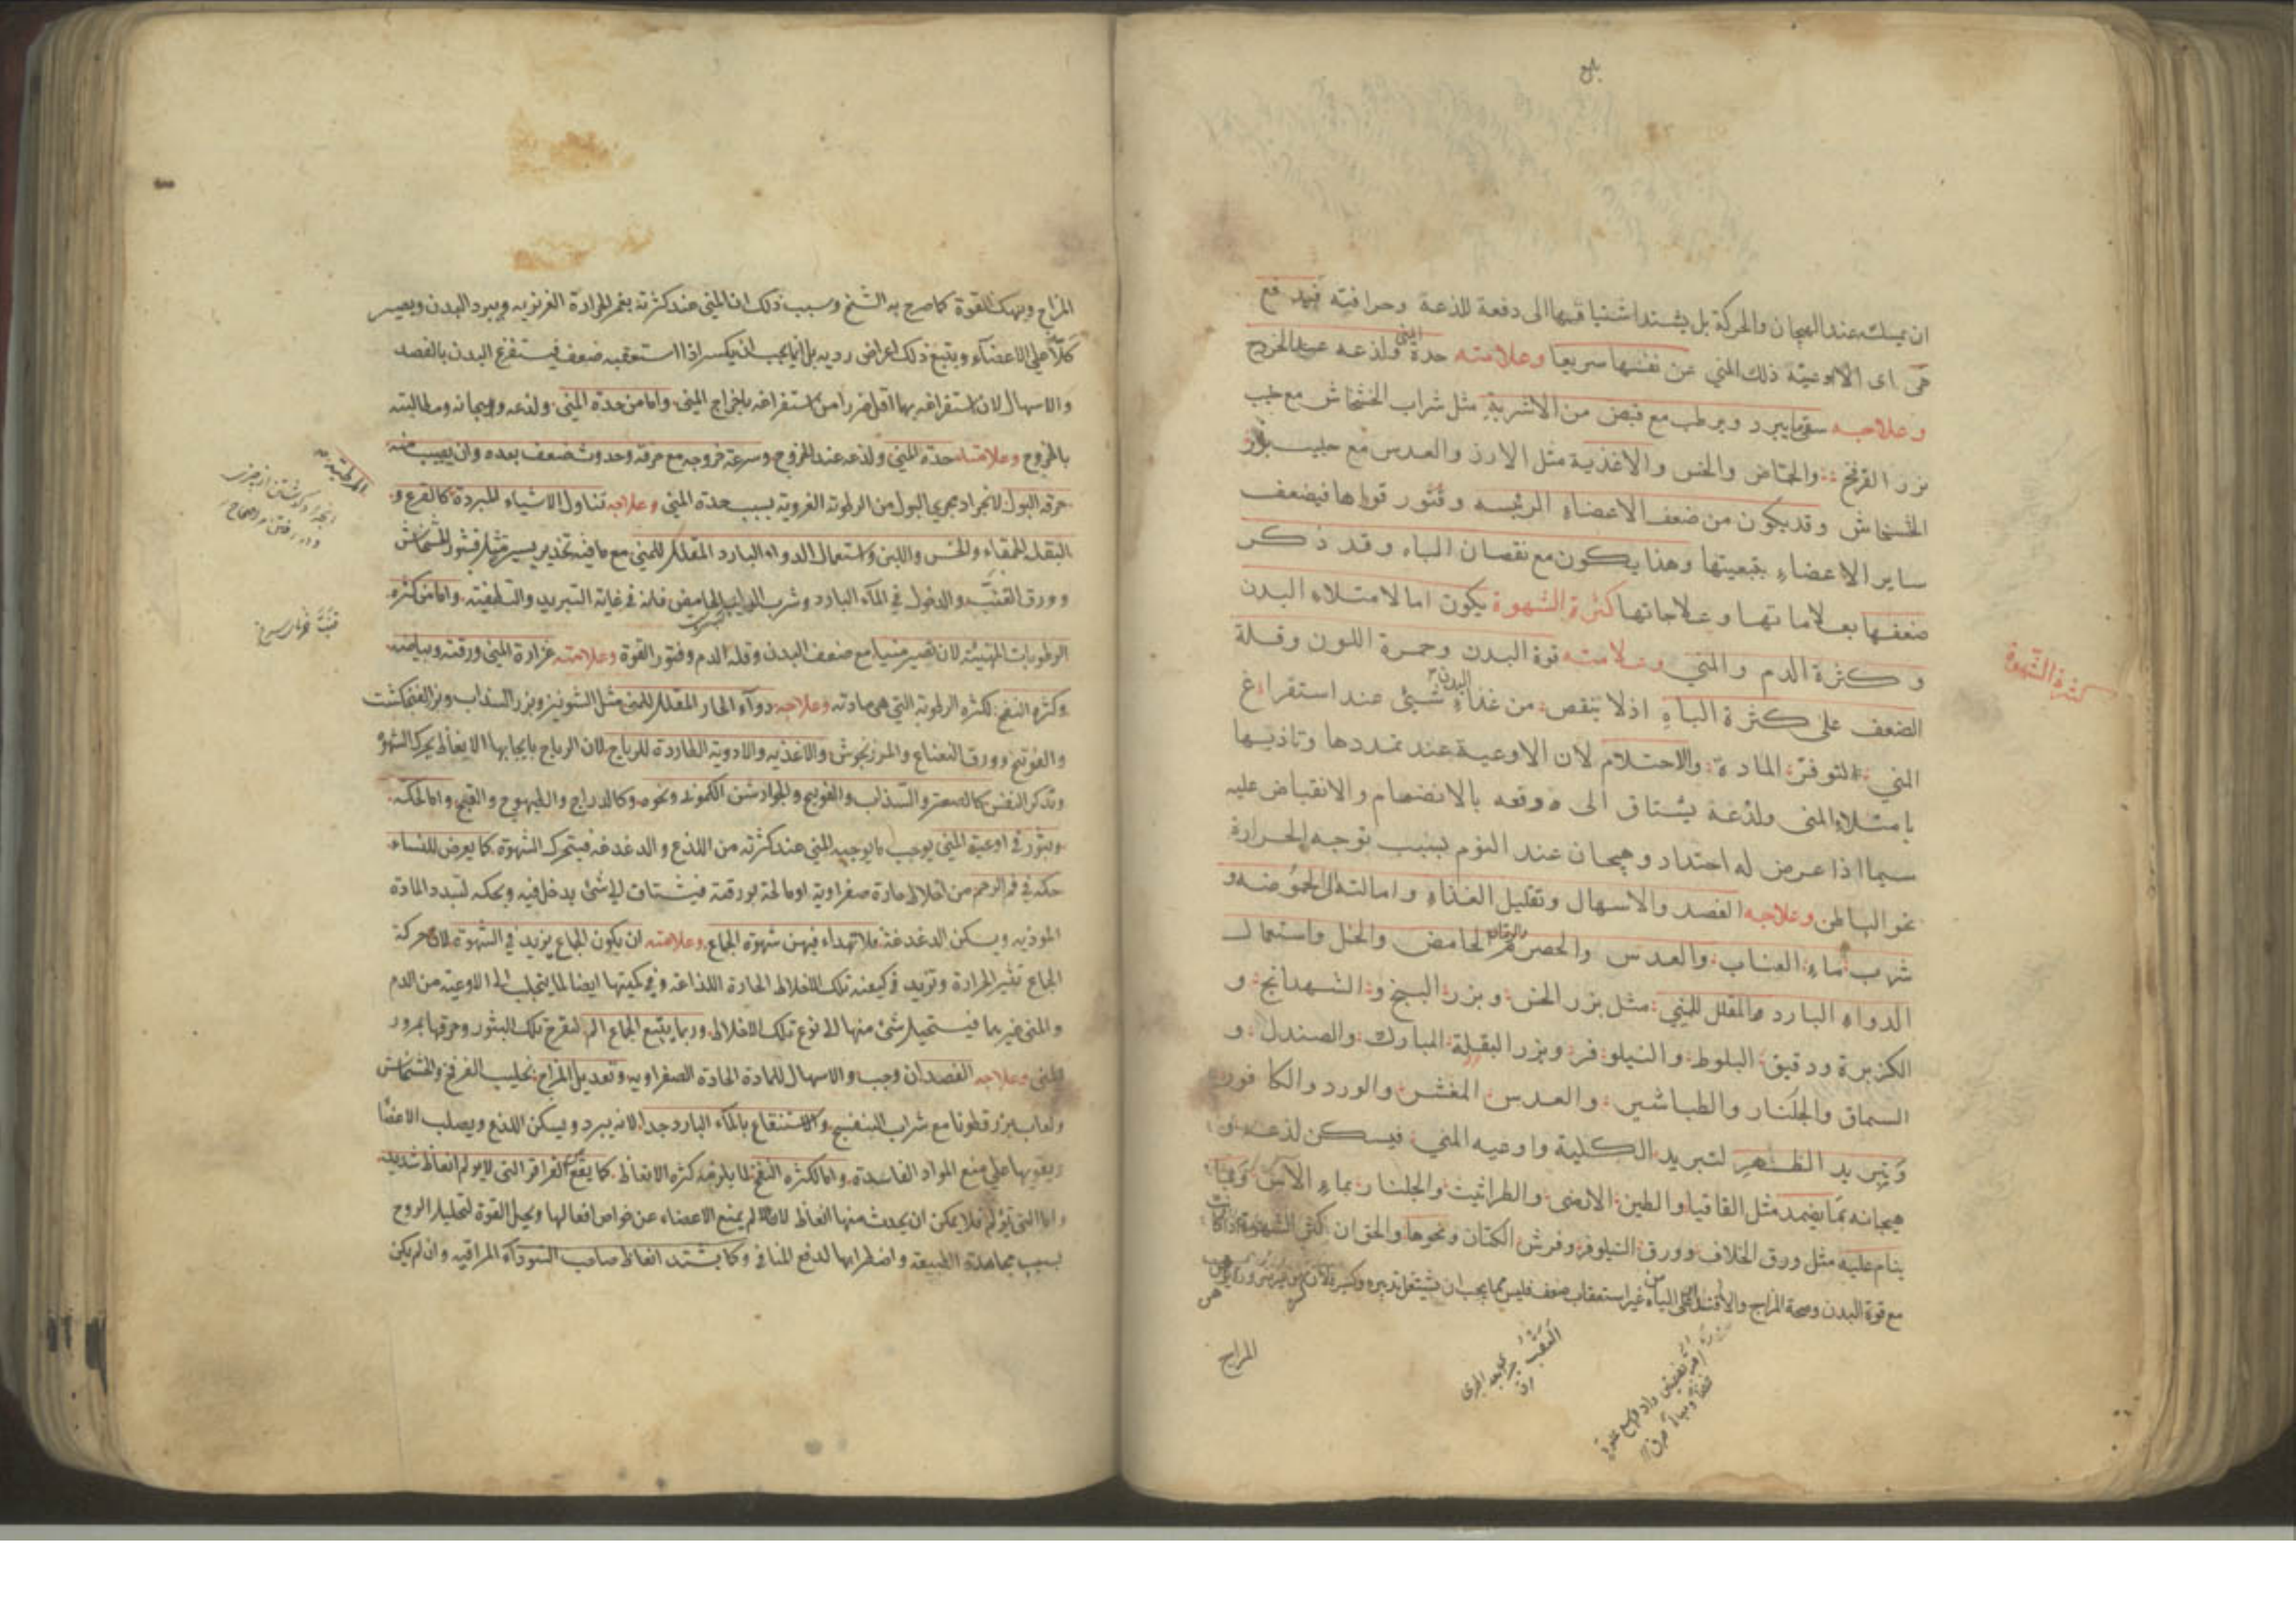 ان يمسك عند الهيجان والحركة بل يشتد اشتياقها الى دفعة للذعة وحرافته فيدفع
هى اى الاوعية ذلك المني عن نفسها سريعا وعلامته حدة المنى ولذعه عند الخروج
وعلاجه سقى ما يبرد ويرطب مع قبض من الاشربة مثل شراب الخشخاش مع حليب
بزر الفرفخ والحماض والخس والاغذية مثل الارز والعدس مع حليب بزر
الخشخاش وقد يكون من ضعف الاعضاء الرئيسه وفتور قواها فيضعف
ساير الاعضاء بتبعيتها وهذا يكون مع نقصان الباه وقد ذكر
ضعفها بعلاماتها وعلاجاتها كثرة الشهوة يكون اما لامتلاء البدن
وكثرة الدم والمني وعلامته قوة البدن وحمرة اللون وقلة
الضعف على كثرة الباه اذ لا ينقص من غذاء البدن شيئ عند استفراغ
المني لتوفر المادة والاحتلام لان الاوعية عند تمددها وتاذيها
بامتلاء المنى ولذعة يشتاق الى دفعه بالانضمام والانقباض عليه
سيما اذا عرض له احتداد وهيجان عند النوم بسبب توجه الحرارة
نحو الباطن وعلاجه الفصد والاسهال وتقليل الغذاء وامالته الى الحموضه و
شرب ماء العناب والعدس والحصرم والرمان الحامض والخل واستعمال
الدواء البارد المقلل للمني مثل بزر الخس وبزر البنج والشهدانج و
الكزبرة ودقيق البلوط والنيلوفر وبزر البقلة المبارك والصندل و
السماق والجلنار والطباشير والعدس المقشر والورد والكافور
وتبريد الظهر لتبريد الكلية واوعيه المني فيسكن لذعه و
هيجانه بما يضمد مثل القاقيا والطين الارمنى والطراثيث والجلنار بماء الآس وبما
ينام عليه مثل ورق الخلاف وورق النيلوفر وفرش الكتان ونحوها والحق ان كثرة الشهوة اذا كانت
مع قوة البدن وصحة المزاج والاقتدار على الباه من غير استعقاب ضعف فليس مما يجب ان يشتغل بتدبيره وكسره لان
المزاج
كثرة الشهوة
المزاج وينهك القوة كما صرح به الشيخ وسبب ذلك ان المني عند كثرته يغمر الحرارة الغريزيه ويبرد البدن ويصير
كلّا على الاعضاء ويتبع ذلك اعراض رديه بل انما يجب ان يكسر اذا استعقبه ضعف فيستفرغ البدن بالفصد
والاسهال لان استفراغه بهما اقل ضررا من استفراغه باخراج المنى واما من حدة المني ولذعه وهيجانه ومطالبته
بالخروج وعلامته حدة المني ولذعه عند الخروج وسرعة خروجه مع حرقه وحدوث ضعف بعده وان يصيب منه
حرقه البول لانجراد مجرى البول من الرطوبة الغروية بسبب حدة المني وعلاجه تناول الاشياء المبردة كالقرع و
البقلة الحمقاء والخس واللبن واستعمال الدواء البارد المقلل للمني مع ما فيه تخدير يسير مثل قشور الخشخاش
وورق القنّب والدخول في الماء البارد وشرب اللبن الحامض فانه في غاية التبريد والتطفيه واما من كثرة
الرطوبات المتهيئة لان تصير منيا مع ضعف البدن وقلة الدم وفتور القوة وعلامته غزارة المني ورقته وبياضه
وكثرة النفخ لكثرة الرطوبة التي هي مادته وعلاجه دواء الحار المقلل للمني مثل الشونيز وبزر السذاب وبزر الفنجنكشت
والفوتنج وورق النعناع والمرزنجوش والاغذيه والادوية الطاردة للرياح لان الرياح بايجابها الانعاظ يحرك الشهوة
وتذكر النفس كالصعتر والسذاب والفوتنج والجوارشن الكمونى ونحوه وكالدراج والطيهوج والقبج واما لحكة
وبثور في اوعية المنى يوجب ما يوجبه المني عند كثرته من اللذع والدغدغه فيتحرك الشهوة كما يعرض للنساء
حكة في فم الرحم من اخلاط حادة صفراوية او مالحة بورقية فيشتاق الى شئ يدخل فيه ويحكه لتبدد المادة
الموذيه ويسكن الدغدغة فلا تهداء فيهن شهوة الجماع وعلامته ان يكون الجماع يزيد في الشهوة لان حركة
الجماع تثير الحرارة وتزيد في كيفية تلك الاخلاط الحادة اللذاعة وفي كميتها ايضا لما يتجلب الى الاوعية من الدم
والمنى غيرهما فيستحيل شئ منها الى نوع تلك الاخلاط وربما يتبع الجماع الم لتقرح تلك البثور وحرقها بمرور
المنى وعلاجه الفصد ان وجب والاسهال للمادة الحادة الصفراويه وتعديل المزاج بحليب الفرفخ والخشخاش
ولعاب بزر قطونا مع شراب البنفسج والاستنقاع بالماء البارد جدا لانه يبرد ويسكن اللذع ويصلب الاعضا
ويقويها على منع المواد الفاسدة واما لكثرة النفخ لما يلزمه كثرة الانعاظ كما يقع القراقر التى لا يولم انعاظ شديد
واما التى تولم فلا يمكن ان يحدث منها انعاظ لان الالم يمنع الاعضاء عن خواص افعالها ويحل القوة لتحليل الروح
بسبب مجاهدة الطبيعة واضطرابها لدفع المنافى وكما يشتد انعاظ صاحب السوداء المراقيه وان لم يكن